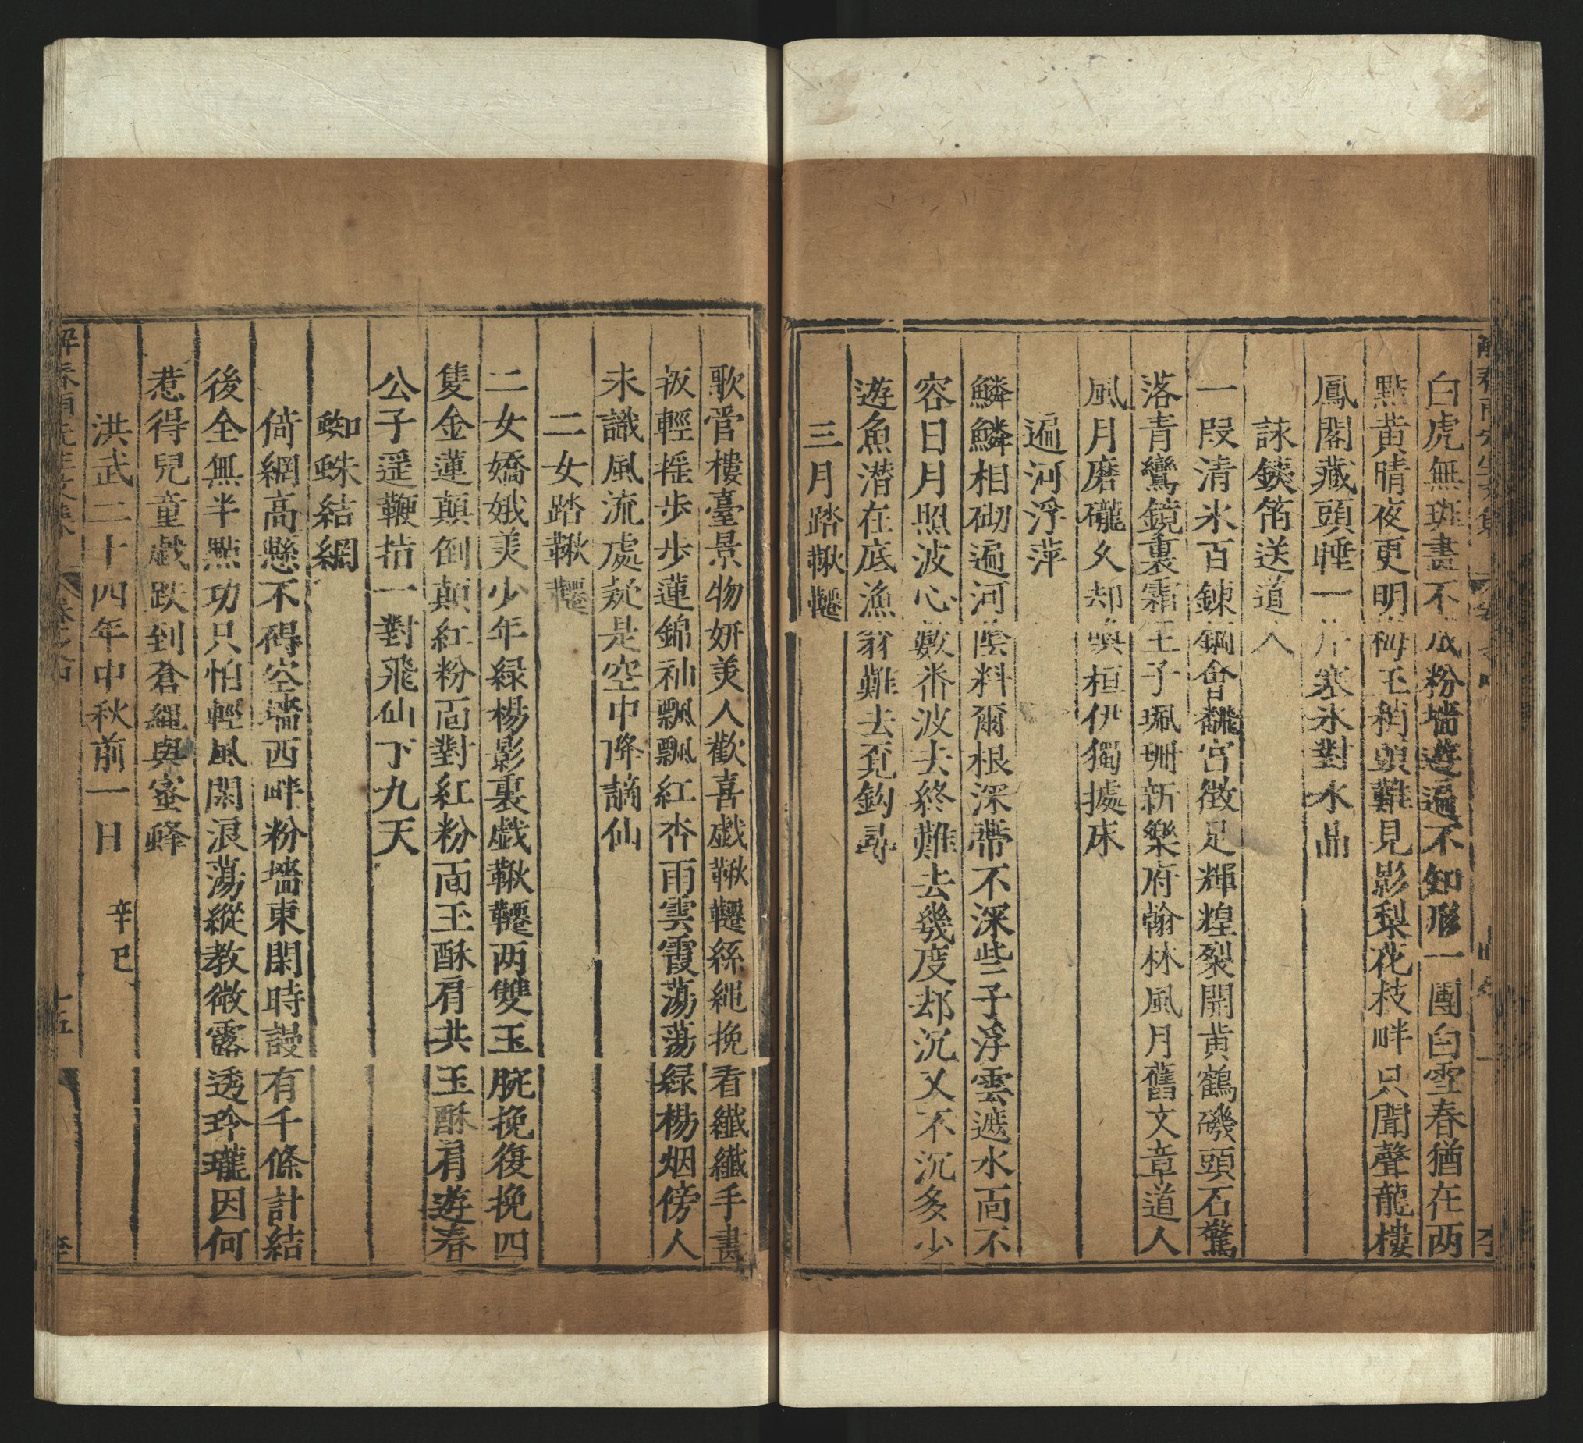 白虎無斑畫不成粉墻遊遍不知形一團白雪春猶在两
點黄晴夜更明梅玉稍頭難見影梨花枝畔只聞聲龍樓
鳳閣藏頭睡一片寒氷對水晶
詠鐵笛送道人
一段清氷百鍊鋼會翻宫徴足輝煌裂開黄鶴磯頭石驚
落青鸞鏡裏霜王子珮珊新樂府翰林風月舊文章道人
風月磨礲久却與桓伊獨據床
遍河浮萍
鱗鱗相砌遍河隂料爾根深蒂不深些子浮雲遮水面不
容日月照波心數番波去終難去幾度却沉又不沉多少
遊魚潜在底漁翁難去覔鈎尋
三月踏鞦韆
歌管樓臺景物妍美人歡喜戯鞦韆絲繩挽看纖纖手畫
板輕摇步步蓮錦袖飄飄紅杏雨雲霞蕩蕩緑楊烟傍人
未識風流處疑是空中降謫仙
二女踏鞦韆
二女嬌娥美少年緑楊影裏戯鞦韆两雙玉腕挽復挽四
隻金蓮顛倒顛紅粉面對紅粉面玉酥肩共玉酥肩遊春
公子遥鞭指一對飛仙下九天
蜘蛛結網
倚網高懸不碍空墻西畔粉墻東閑時謾有千條計結
後全無半點功只怕輕風閑浪蕩縱教微露透玲瓏因何
惹得兒童戯跌到倉繩與蜜蜂
洪武二十四年中秋前一日 辛巳